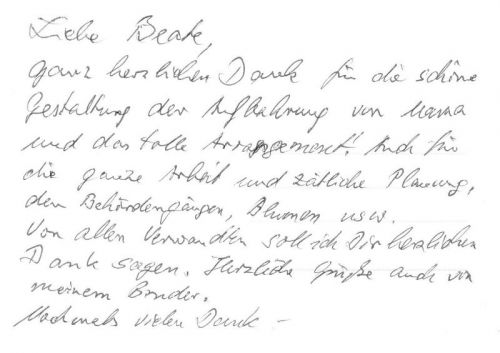 Liebe Beate,
ganz herzlichen Dank für die schöne
Gestaltung der Aufbahrung von Mama
und das tolle Arrangement! Auch für
die ganze Arbeit und zätliche Planung,
den Behördengängen, Blumen usw.
Von allen Verwandten soll ich Dir herzlichen
Dank sagen. Herzliche Grüße auch von
meinem Bruder.
Nochmals vielen Dank –